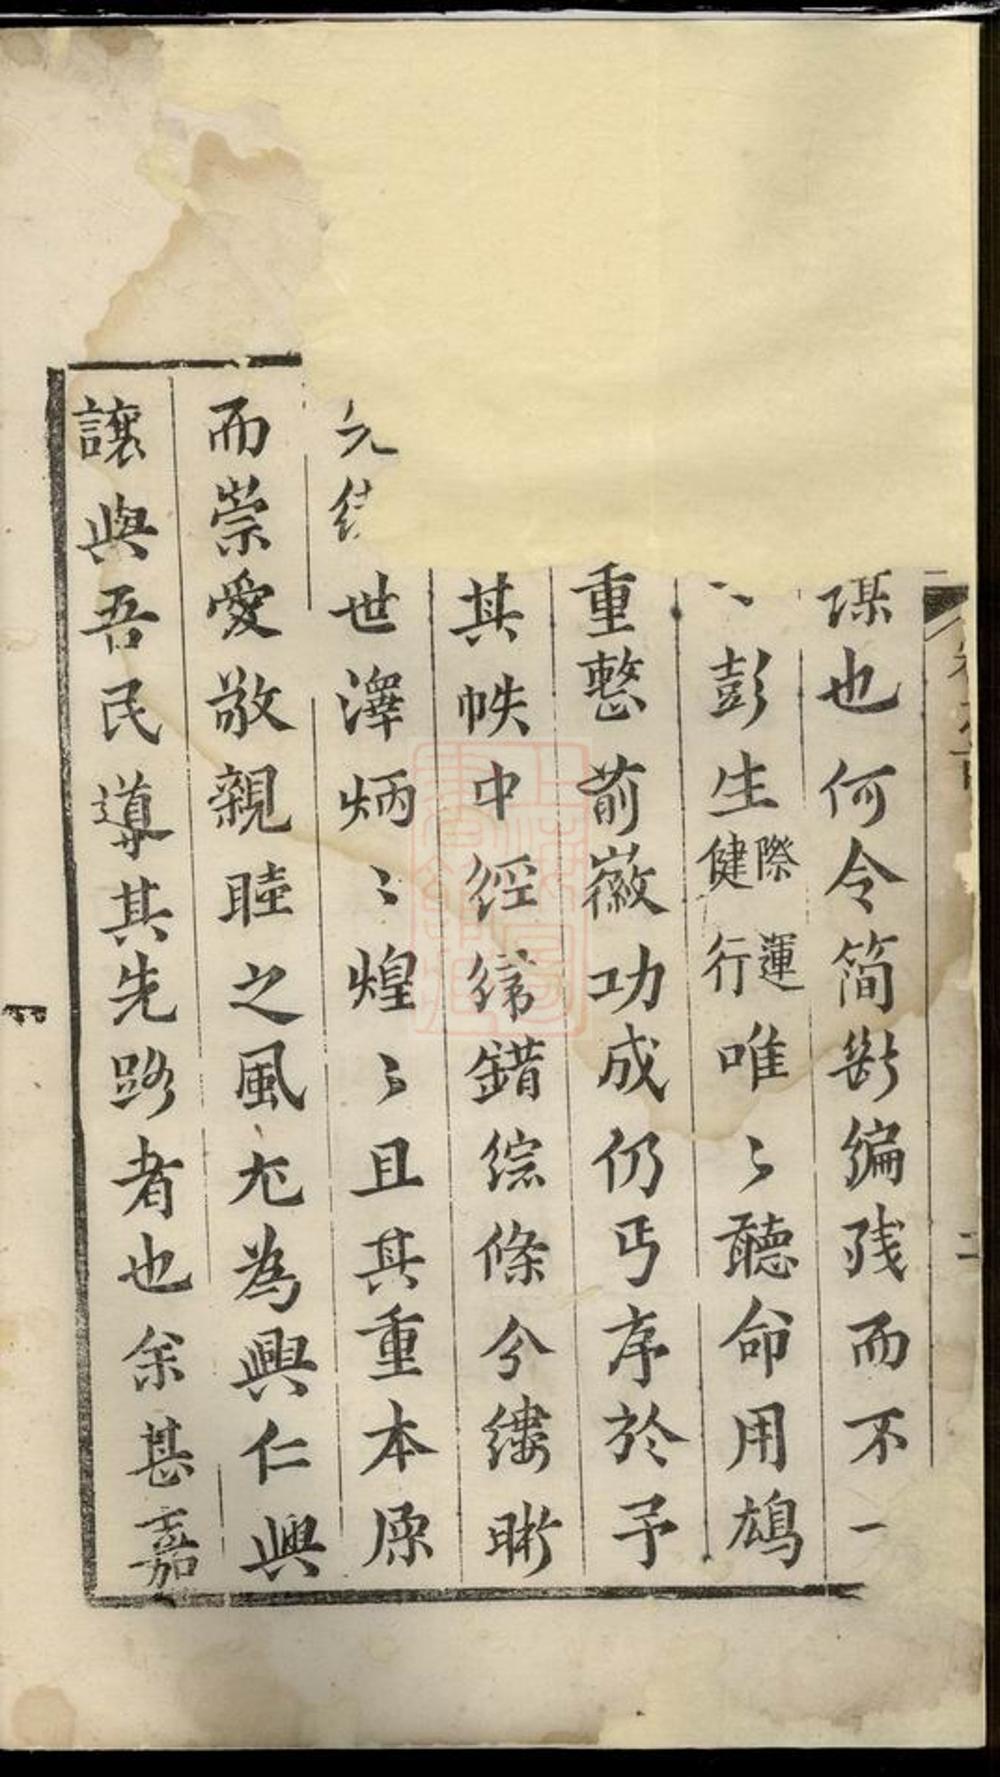 謀也何令简断编残而不一
彭生際運健行唯〻聽命用鳩
重整前徽功成仍丐序於予
其帙中經緯錯综條分缕晰
世澤炳〻煌〻且其重本原
而崇愛敬親睦之風尤為興仁興
讓與吾民導其先路者也余甚嘉
二